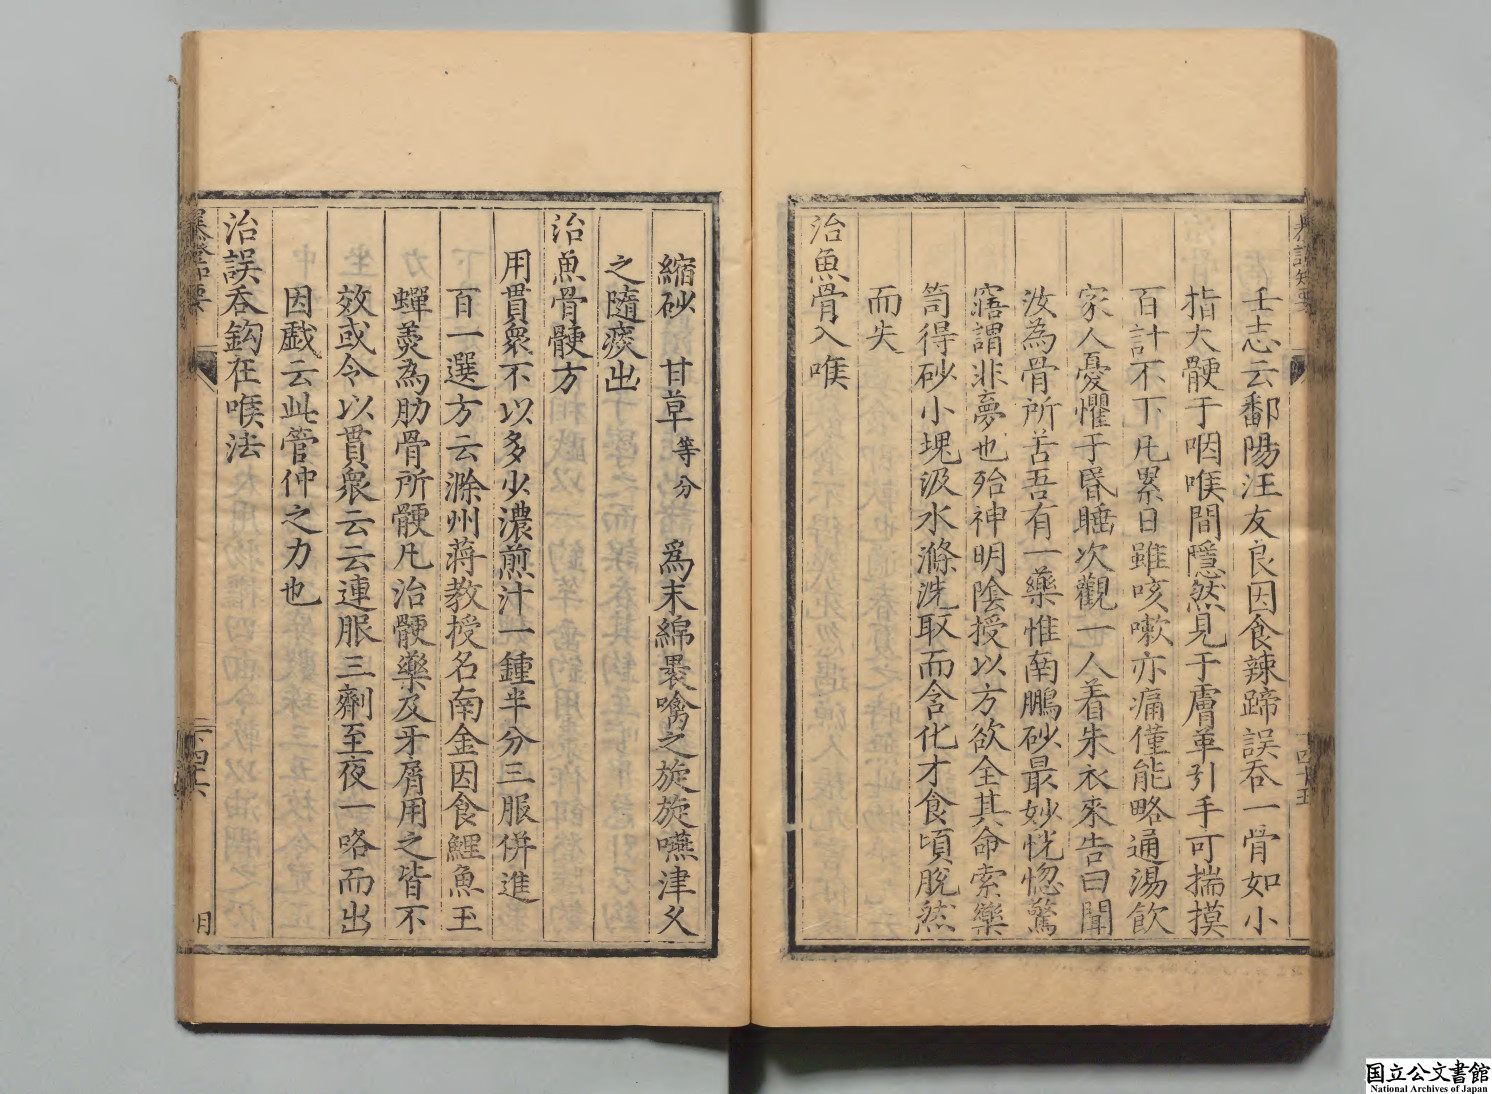 壬志云鄱陽汪友良因食辣蹄誤吞一骨如小
指大骾于咽喉間隱然見于膚革引手可揣摸
百計不下凡累日雖咳嗽亦痛僅能略通湯飲
家人憂懼于昏睡次觀一人着朱衣來告曰聞
汝為骨所苦吾有一藥惟南鵬砂最妙恍惚驚
寤謂非夢也殆神明陰授以方欲全其命索藥
笥得砂小塊汲水滌洗取而含化才食頃脫然
而失
治魚骨入喉
縮砂　甘草等分　為末綿裹噙之旋旋嚥津乆
之隨痰出
治魚骨骾方
用貫衆不以多少濃煎汁一鍾半分三服併進
百一選方云滁州蔣教授名南金因食鯉魚玉
蟬羹為肋骨所骾凡治骾藥及牙屑用之皆不
效或令以貫衆云云連服三劑至夜一咯而出
因戱云此管仲之力也
治誤吞鈎在喉法
国立公文書館
National Archives of Japan